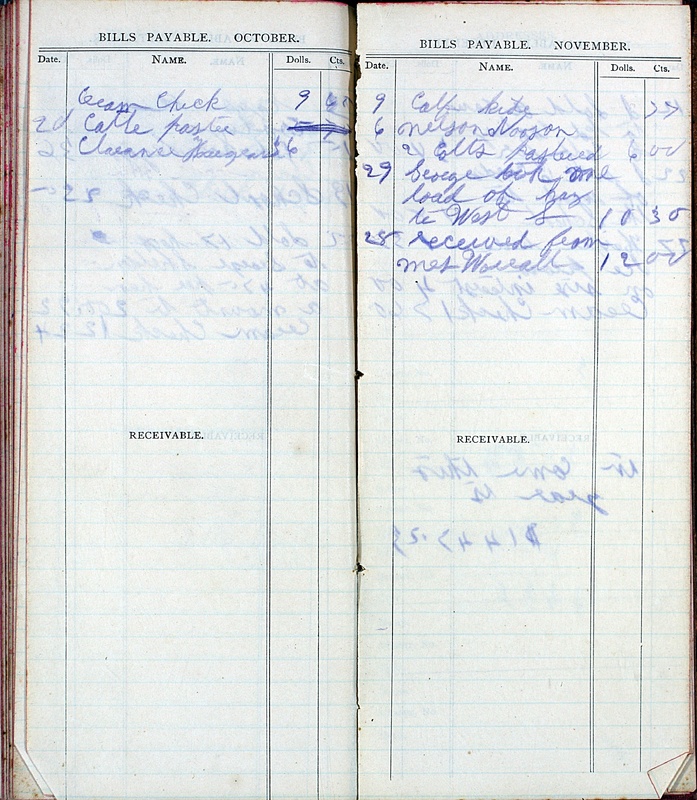 BILLS PAYABLE. OCTOBER.
Date. NAME. Dolls. Cts.
Cream Check 9
20 Cattle pastee
Clarence 6
RECEIVABLE.
BILLS PAYABLE. NOVEMBER.
Date. NAME. Dolls. Cts.
9 Calf hide
6 Nelson Nooson
2 Colts pastured 6 00
29 George took one
load of hay
to West S 10 30
25 received from
12 00
RECEIVABLE.